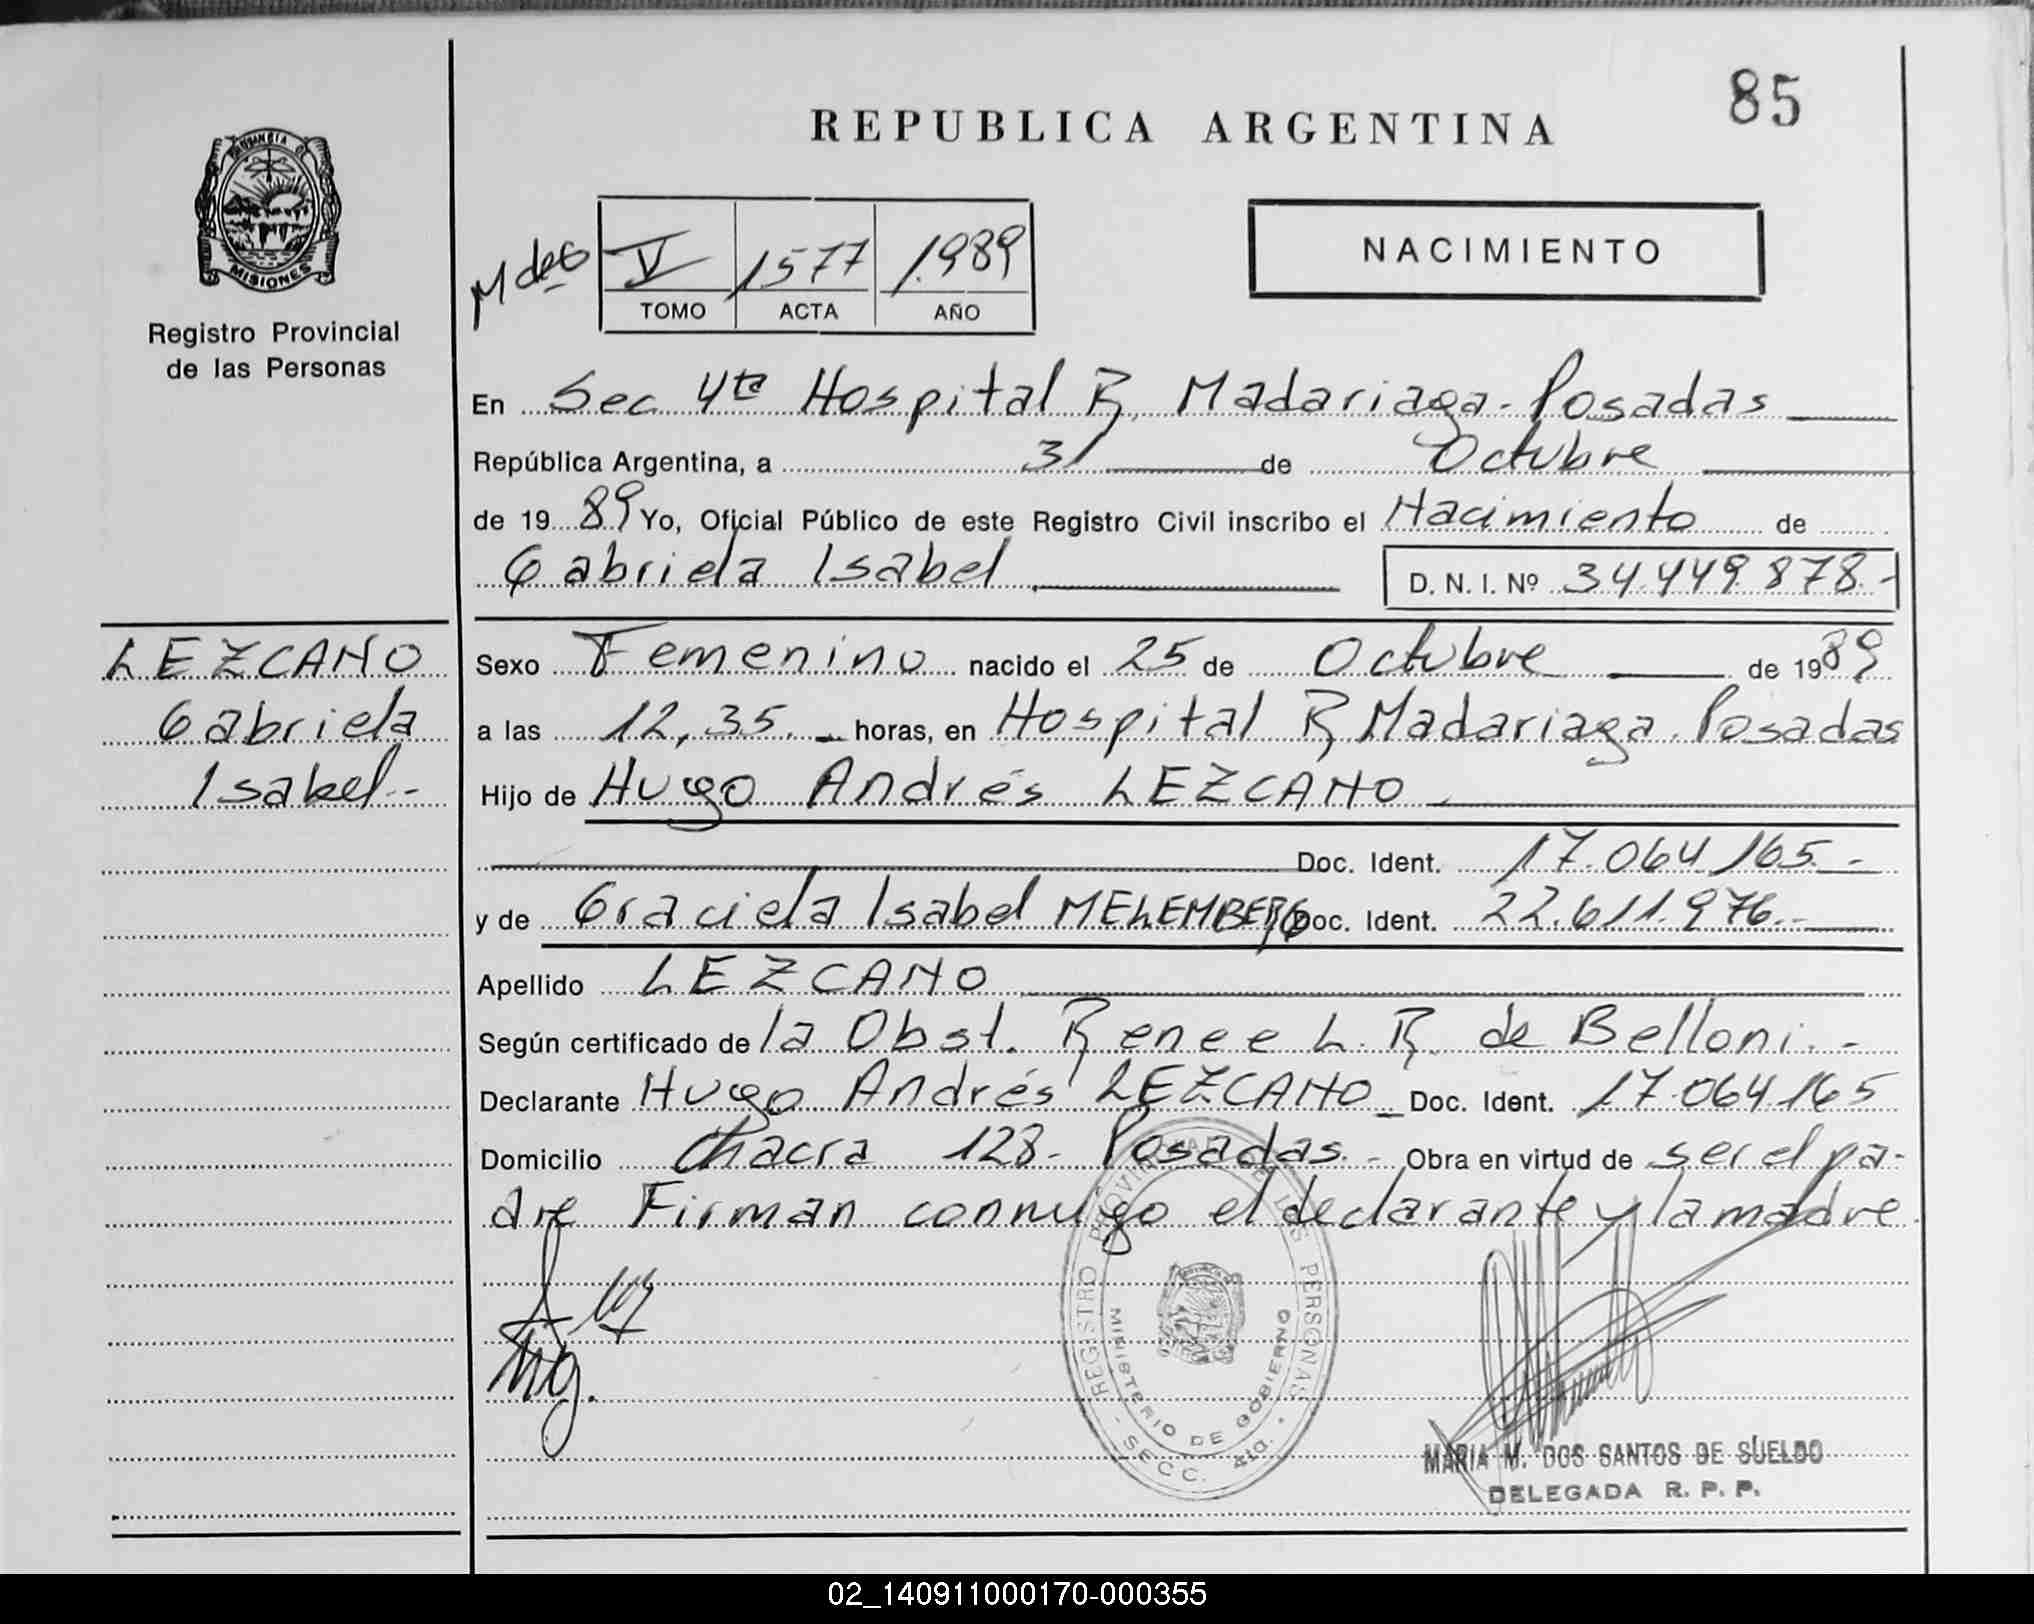 85
REPUBLICA ARGENTINA
PROVINCIA DE
MISIONES
Registro Provincial
de las Personas
V 1577 1989
TOMO ACTA AÑO
NACIMIENTO
En Sec 4ta Hospital R. Madariaga - Posadas
República Argentina, a 31 de Octubre
de 1989 Yo, Oficial Público de este Registro Civil inscribo el Nacimiento de
Gabriela Isabel D. N. I. Nº 34.449.878.-
LEZCANO
Gabriela
Isabel.-
Sexo Femenino nacido el 25 de Octubre de 1989
a las 12,35.- horas, en Hospital R. Madariaga. Posadas
Hijo de Hugo Andrés LEZCANO
Doc. Ident. 17.064.165.-
y de Graciela Isabel MELEMBERG Doc. Ident. 22.611.976.-
Apellido LEZCANO
Según certificado de la Obst. Renee L. R. de Belloni.-
Declarante Hugo Andrés LEZCANO Doc. Ident. 17.064.165
Domicilio Chacra 128.- Posadas.- Obra en virtud de ser el pa-
dre Firman conmigo el declarante y la madre.
REGISTRO PROVINCIAL DE LAS PERSONAS
MINISTERIO DE GOBIERNO
SECC. 4ta.
MARIA M. DOS SANTOS DE SUELDO
DELEGADA R. P. P.
02_140911000170-000355